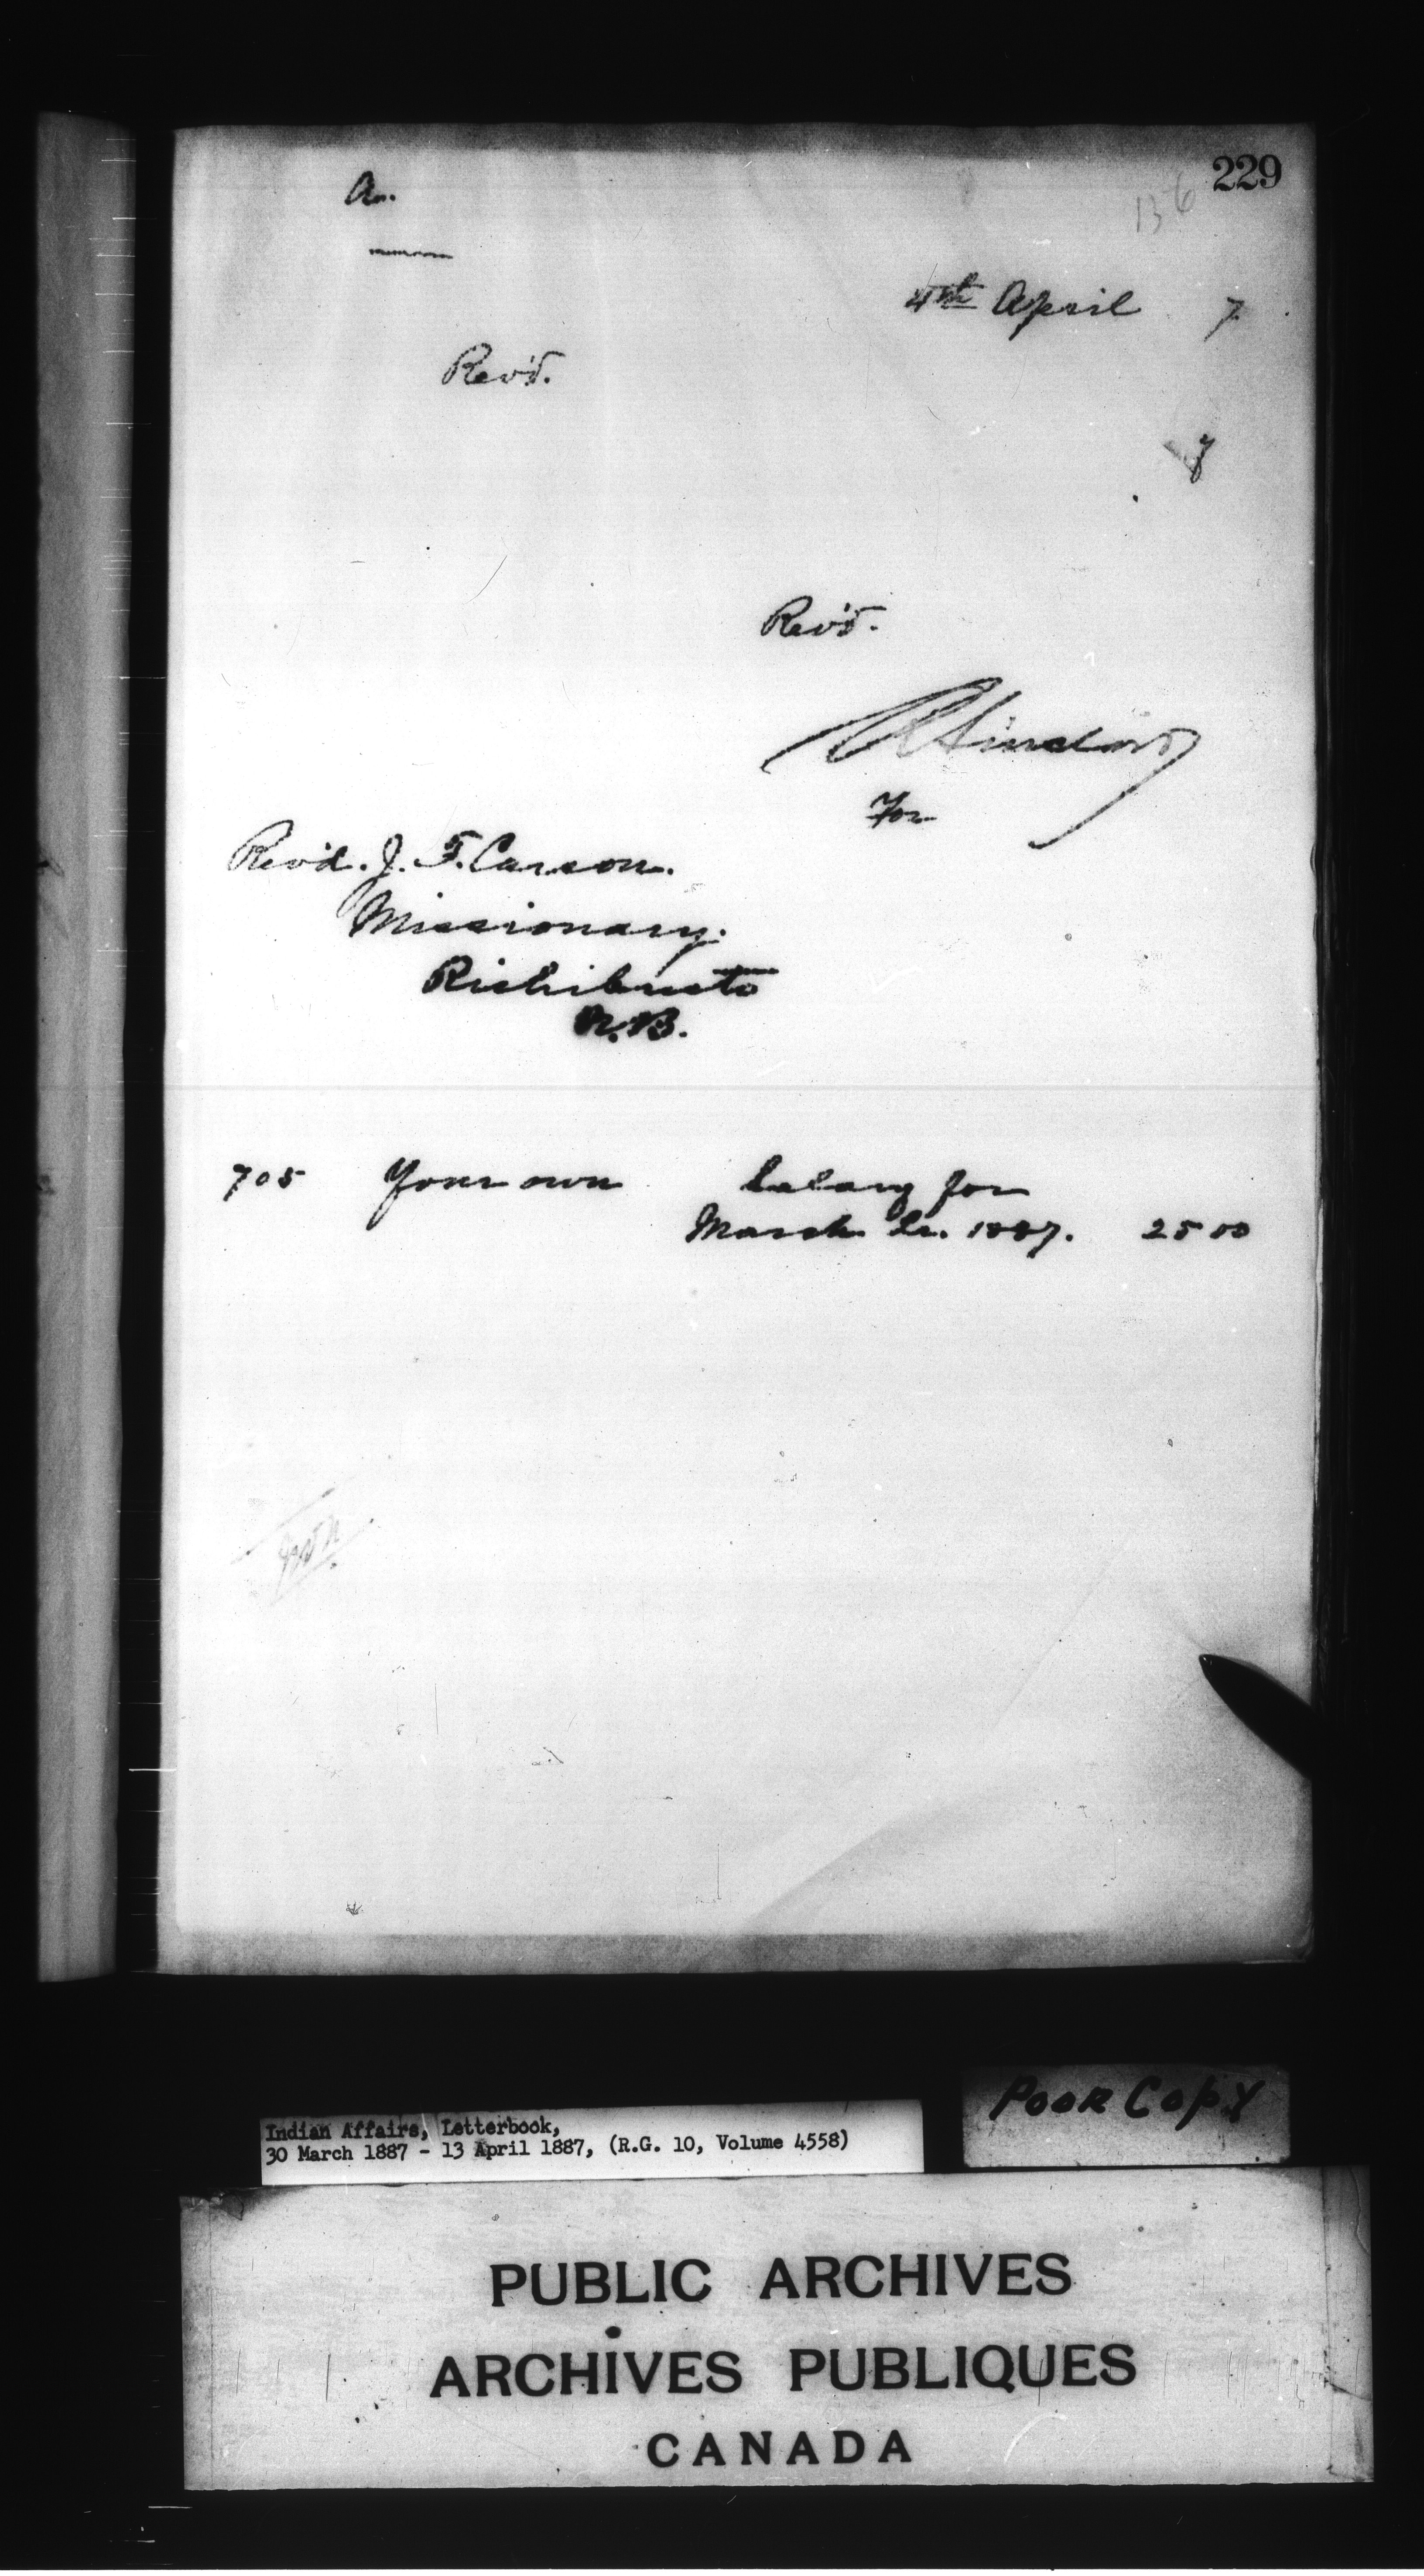 229
136
A.
4th April 7
Rev'd.
y
Rev'd.
R Sinclair
For
Rev'd. J. F. Carson.
Missionary.
Richibucto
N.B.
705 Your own Salary for
March Qr. 1887. 25 00
Indian Affairs, Letterbook,
30 March 1887 - 13 April 1887, (R.G. 10, Volume 4558)
POOR COPY
PUBLIC ARCHIVES
ARCHIVES PUBLIQUES
CANADA